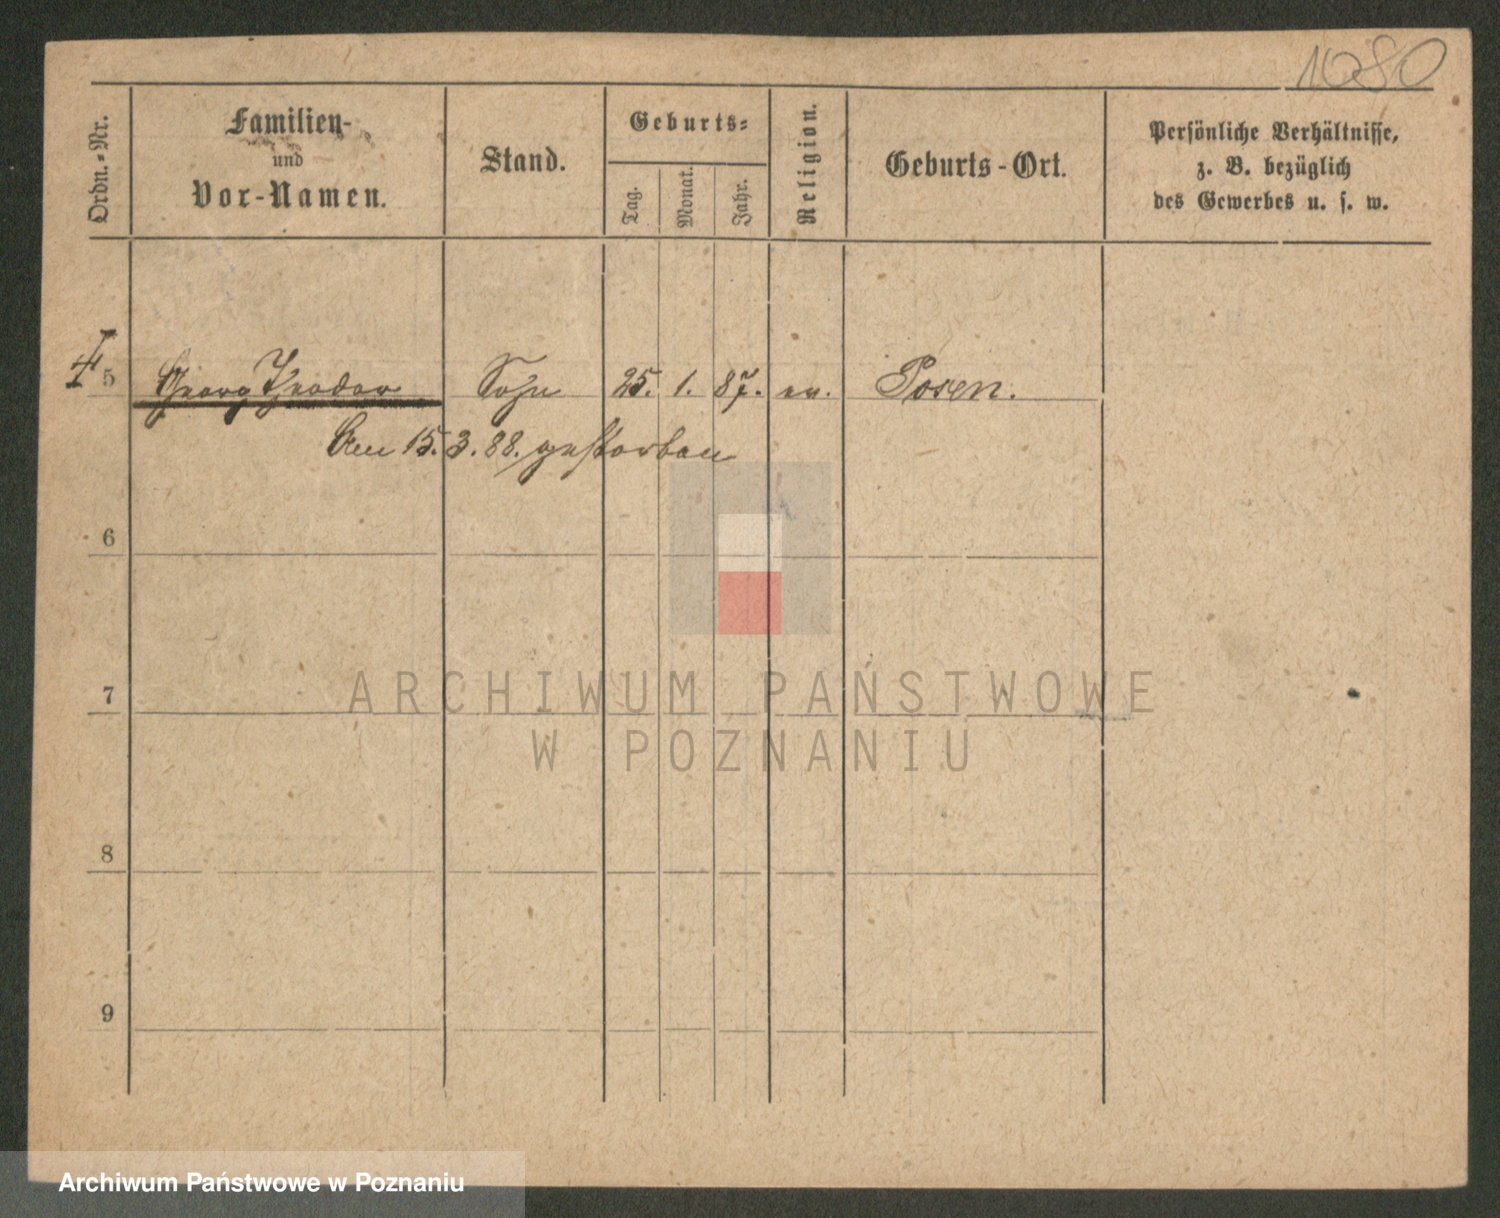 1080
Ordn.-Nr.
Familien-
und
Vor-Namen.
Stand.
Geburts-
Tag.
Monat.
Jahr.
Religion.
Geburts-Ort.
Persönliche Verhältnisse,
z. B. bezüglich
des Gewerbes u. s. w.
5 Georg Theodor Sohn 25. 1. 87. ev. Posen.
Am 15.3.88. gestorben
6
7
8
9
ARCHIWUM PAŃSTWOWE
W POZNANIU
Archiwum Państwowe w Poznaniu